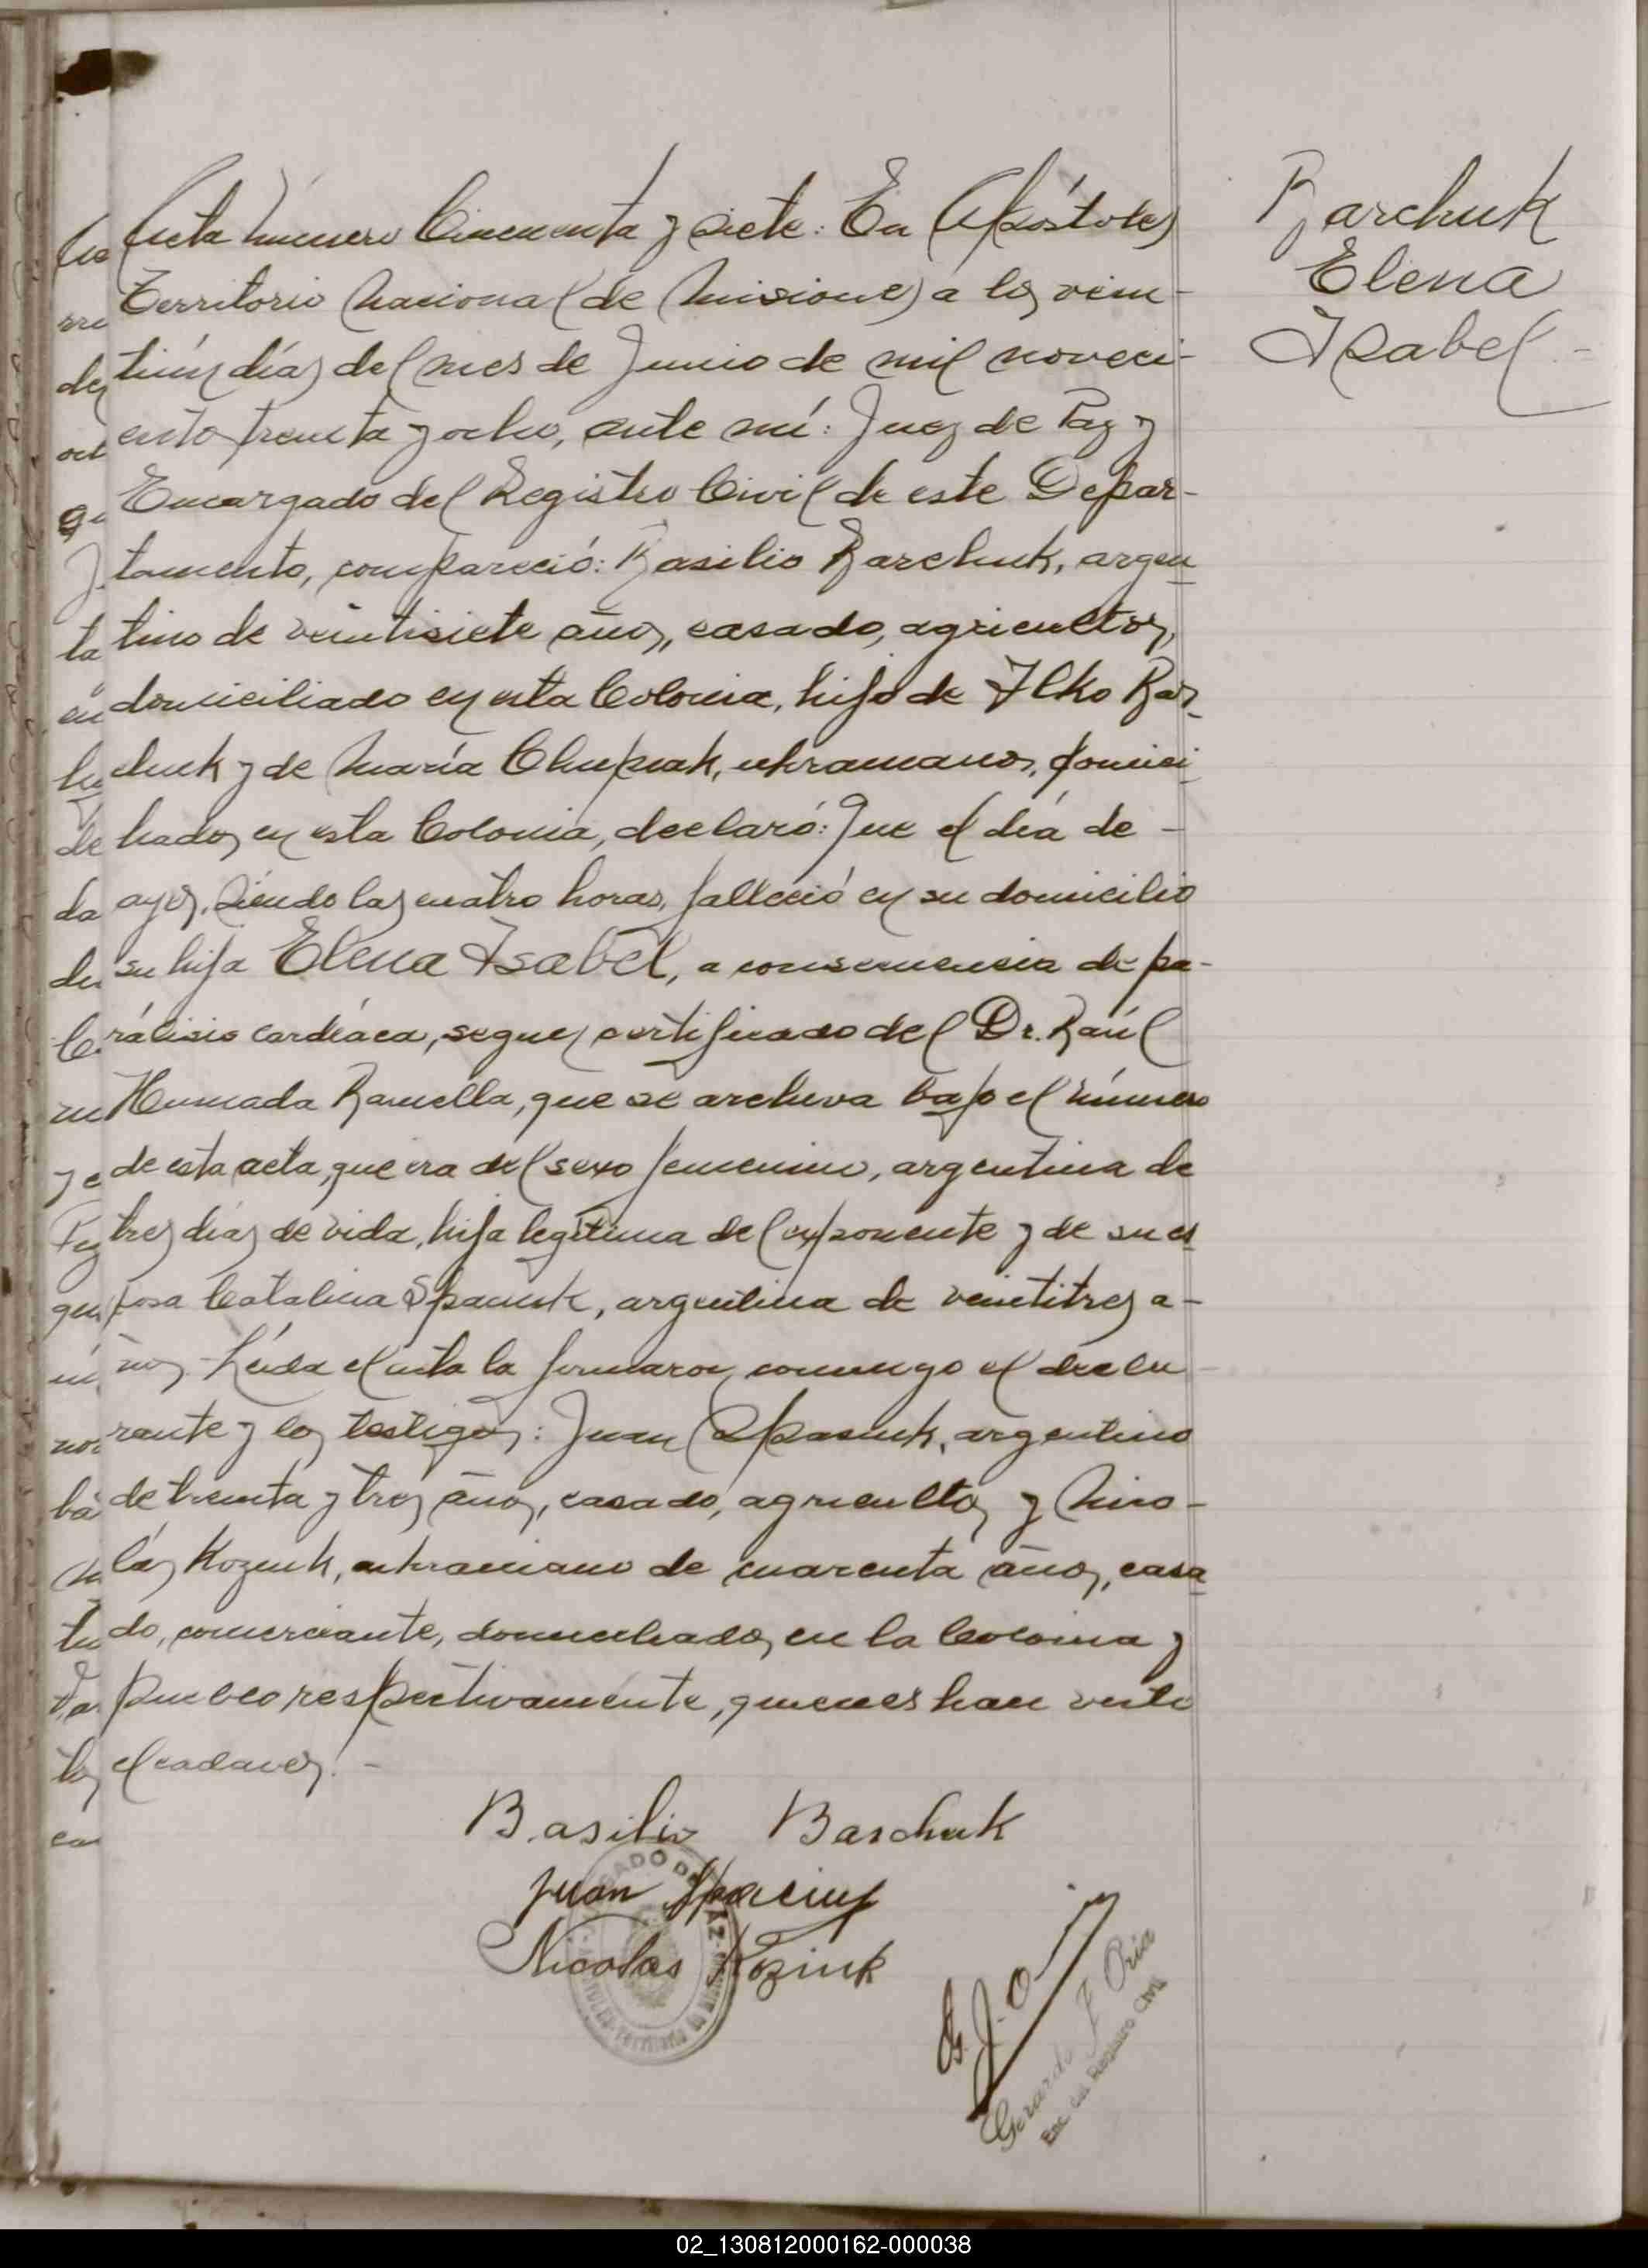 Acta número Cincuenta y siete: En Apóstoles
Territorio Nacional de Misiones a los vein-
tiún días del mes de Junio de mil noveci-
entos treinta y ocho, ante mí: Juez de Paz y
Encargado del Registro Civil de este Depar-
tamento, compareció: Basilio Barchuk, argen
tino de veintisiete años, casado, agricultor,
domiciliado en esta Colonia, hijo de Ilko Bar
chuk y de María Chupiak, ukranianos, domici
liados en esta Colonia, declaró: Que el día de -
ayer, siendo las cuatro horas, falleció en su domicilio
su hija Elena Isabel, a consecuencia de pa-
rálisis cardíaca, segun certificado del Dr. Raúl
Humada Ramella, que se archiva bajo el número
de esta acta, que era del sexo femenino, argentina de
tres días de vida, hija legítima del exponente y de su es
posa Catalina Spasiuk, argentina de veintitres a-
ños. - Leída el acta la firmaron conmigo el decla
rante y los testigos: Juan Spasiuk, argentino
de treinta y tres años, casado, agricultor y Nico-
lás Koziuk, ukraniano de cuarenta años, casa
do, comerciante, domiciliados en la Colonia y
pueblo respectivamente, quienes han visto
el cadaver. -
Barchuk
Elena
Isabel -
Basilio Barchuk
Juan
Nicolas Koziuk
G. J. O.
Gerardo J. Oria
Enc. del Registro Civil
02_130812000162-000038